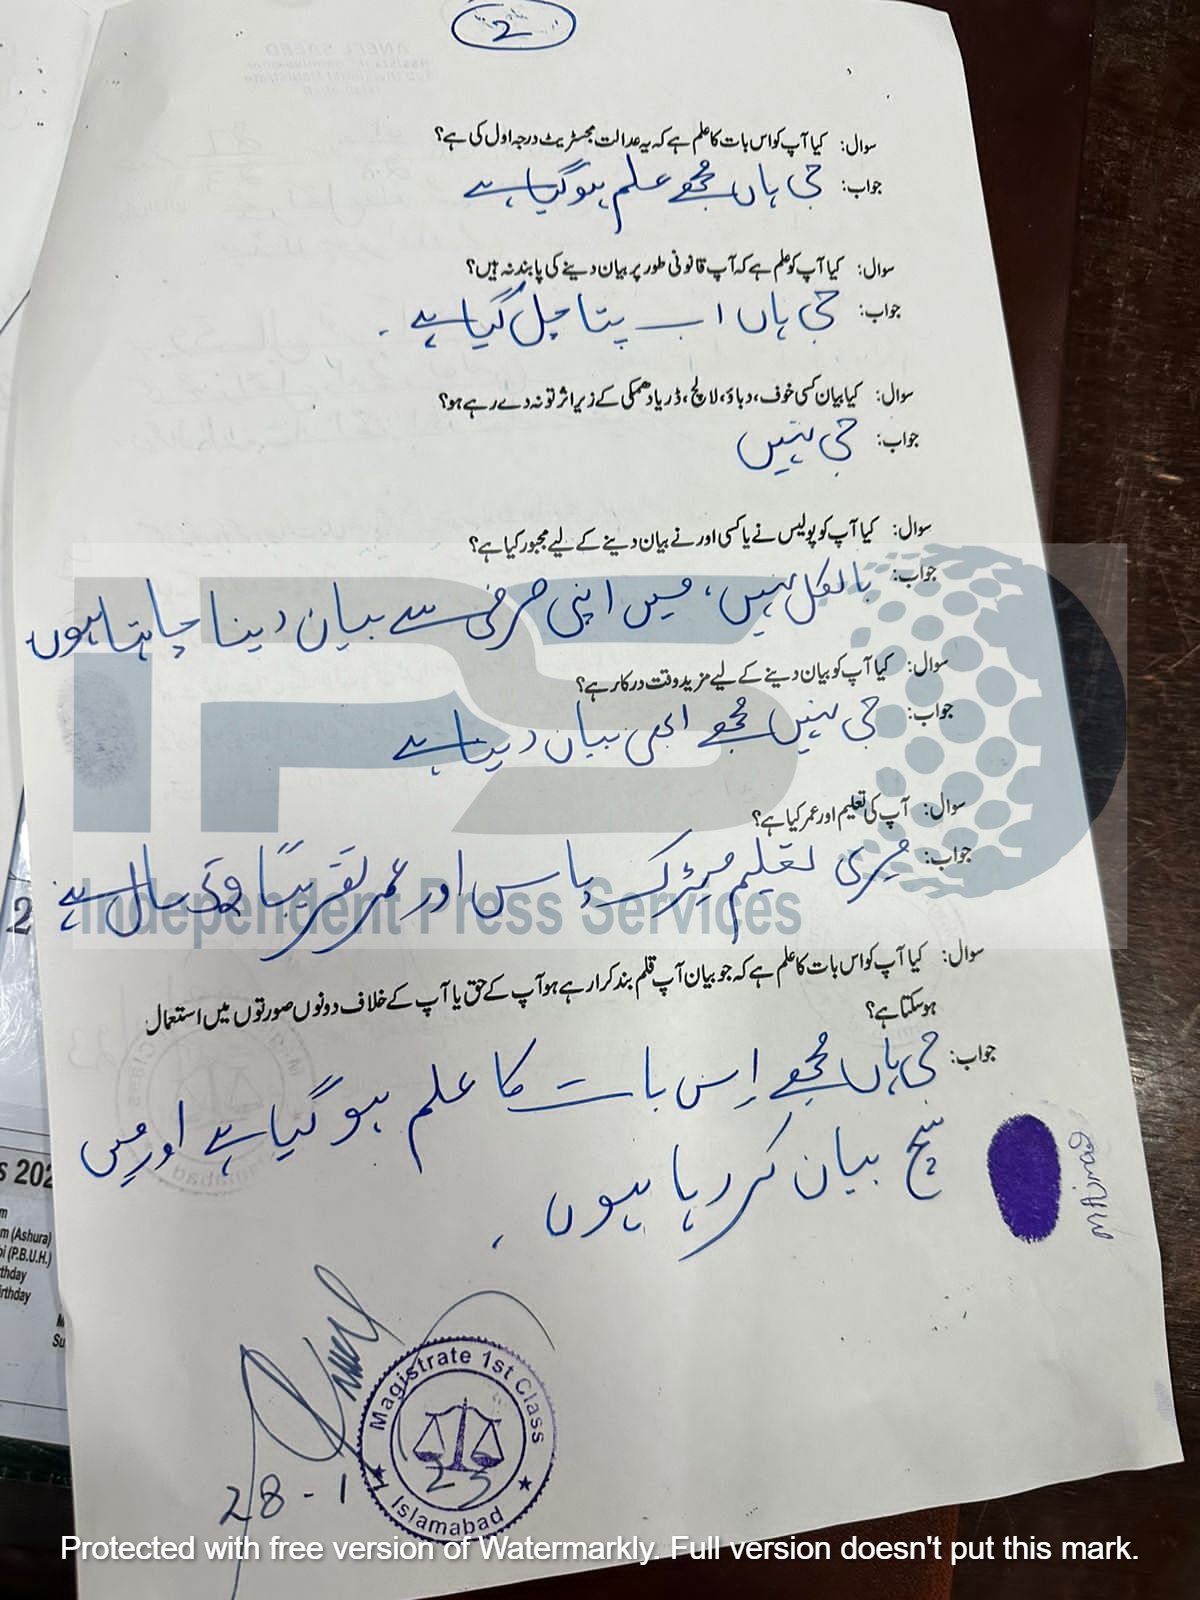 2
سوال: کیا آپ کو اس بات کا علم ہے کہ یہ عدالت مجسٹریٹ درجہ اول کی ہے؟
جواب: جی ہاں مجھے علم ہو گیا ہے
سوال: کیا آپ کو علم ہے کہ آپ قانونی طور پر بیان دینے کی پابند نہ ہیں؟
جواب: جی ہاں اب پتا چل گیا ہے ۔
سوال: کیا بیان کسی خوف، دباؤ، لالچ، ڈر یا دھمکی کے زیر اثر تو نہ دے رہے ہو؟
جواب: جی نہیں
سوال: کیا آپ کو پولیس نے یا کسی اور نے بیان دینے کے لیے مجبور کیا ہے؟
جواب: بالکل نہیں، میں اپنی مرضی سے بیان دینا چاہتا ہوں
سوال: کیا آپ کو بیان دینے کے لیے مزید وقت درکار ہے؟
جواب: جی نہیں مجھے ابھی بیان دینا ہے
سوال: آپ کی تعلیم اور عمر کیا ہے؟
جواب: میری تعلیم میٹرک پاس اور عمر تقریباً سال ہے
سوال: کیا آپ کو اس بات کا علم ہے کہ جو بیان آپ قلم بند کرا رہے ہو آپ کے حق یا آپ کے خلاف دونوں صورتوں میں استعمال
ہو سکتا ہے؟
جواب: جی ہاں مجھے اِس بات کا علم ہو گیا ہے اور میں
سچ بیان کر رہا ہوں ۔
Magistrate 1st Class
Islamabad
28-1
23
IPS
Independent Press Services
2
s 202
m (Ashura)
bi (P.B.U.H.)
rthday
irthday
Protected with free version of Watermarkly. Full version doesn't put this mark.